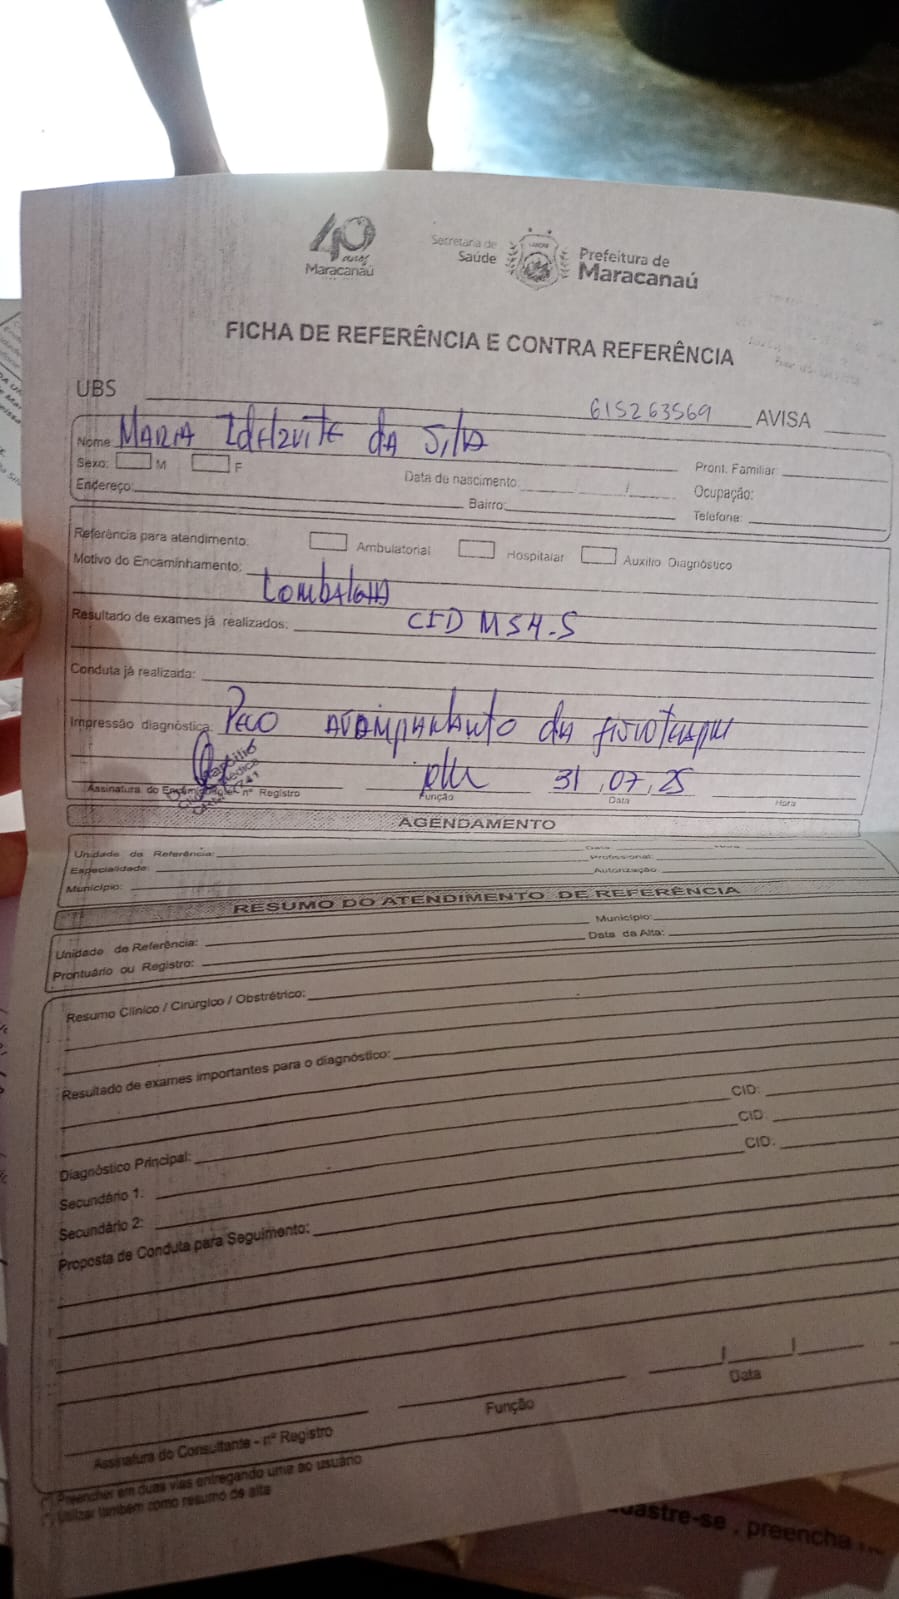 40
anos
Maracanaú
Secretaria de
Saúde
Prefeitura de
Maracanaú
FICHA DE REFERÊNCIA E CONTRA REFERÊNCIA
UBS 615263569 AVISA
Nome MARIA IdElzuitE dA Silva
Sexo: M F Data de nascimento: / Pront. Familiar
Endereço: Bairro: Ocupação:
Telefone:
Referência para atendimento: Ambulatorial Hospitalar Auxílio Diagnóstico
Motivo do Encaminhamento: Lombalgia
Resultado de exames já realizados: CID M54.5
Conduta já realizada:
Impressão diagnóstica: Peço acompanhamento da fisioterapia
31 . 07 . 25
Assinatura do nº Registro Função Data Hora
AGENDAMENTO
Unidade de Referência: Data Hora
Especialidade: Profissional:
Município: Autorização
RESUMO DO ATENDIMENTO DE REFERÊNCIA
Unidade de Referência: Município:
Prontuário ou Registro: Data da Alta:
Resumo Clínico / Cirúrgico / Obstrétrico:
Resultado de exames importantes para o diagnóstico:
Diagnóstico Principal: CID:
Secundário 1: CID:
Secundário 2: CID:
Proposta de Conduta para Seguimento:
Assinatura do Consultante - nº Registro Função Data
(*) Preencher em duas vias entregando uma ao usuário
(*) Utilizar também como resumo de alta
dastre-se , preencha